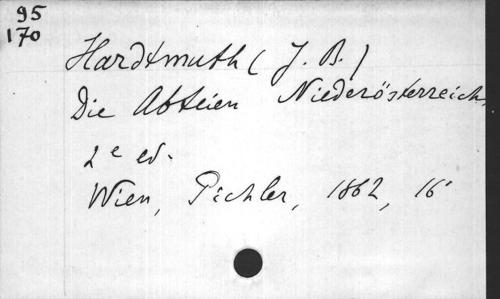 95
170
Hardtmuth (J. B.)
Die Abteien Niederösterreich,
2e ed.
Wien, Pichler, 1862, 16°